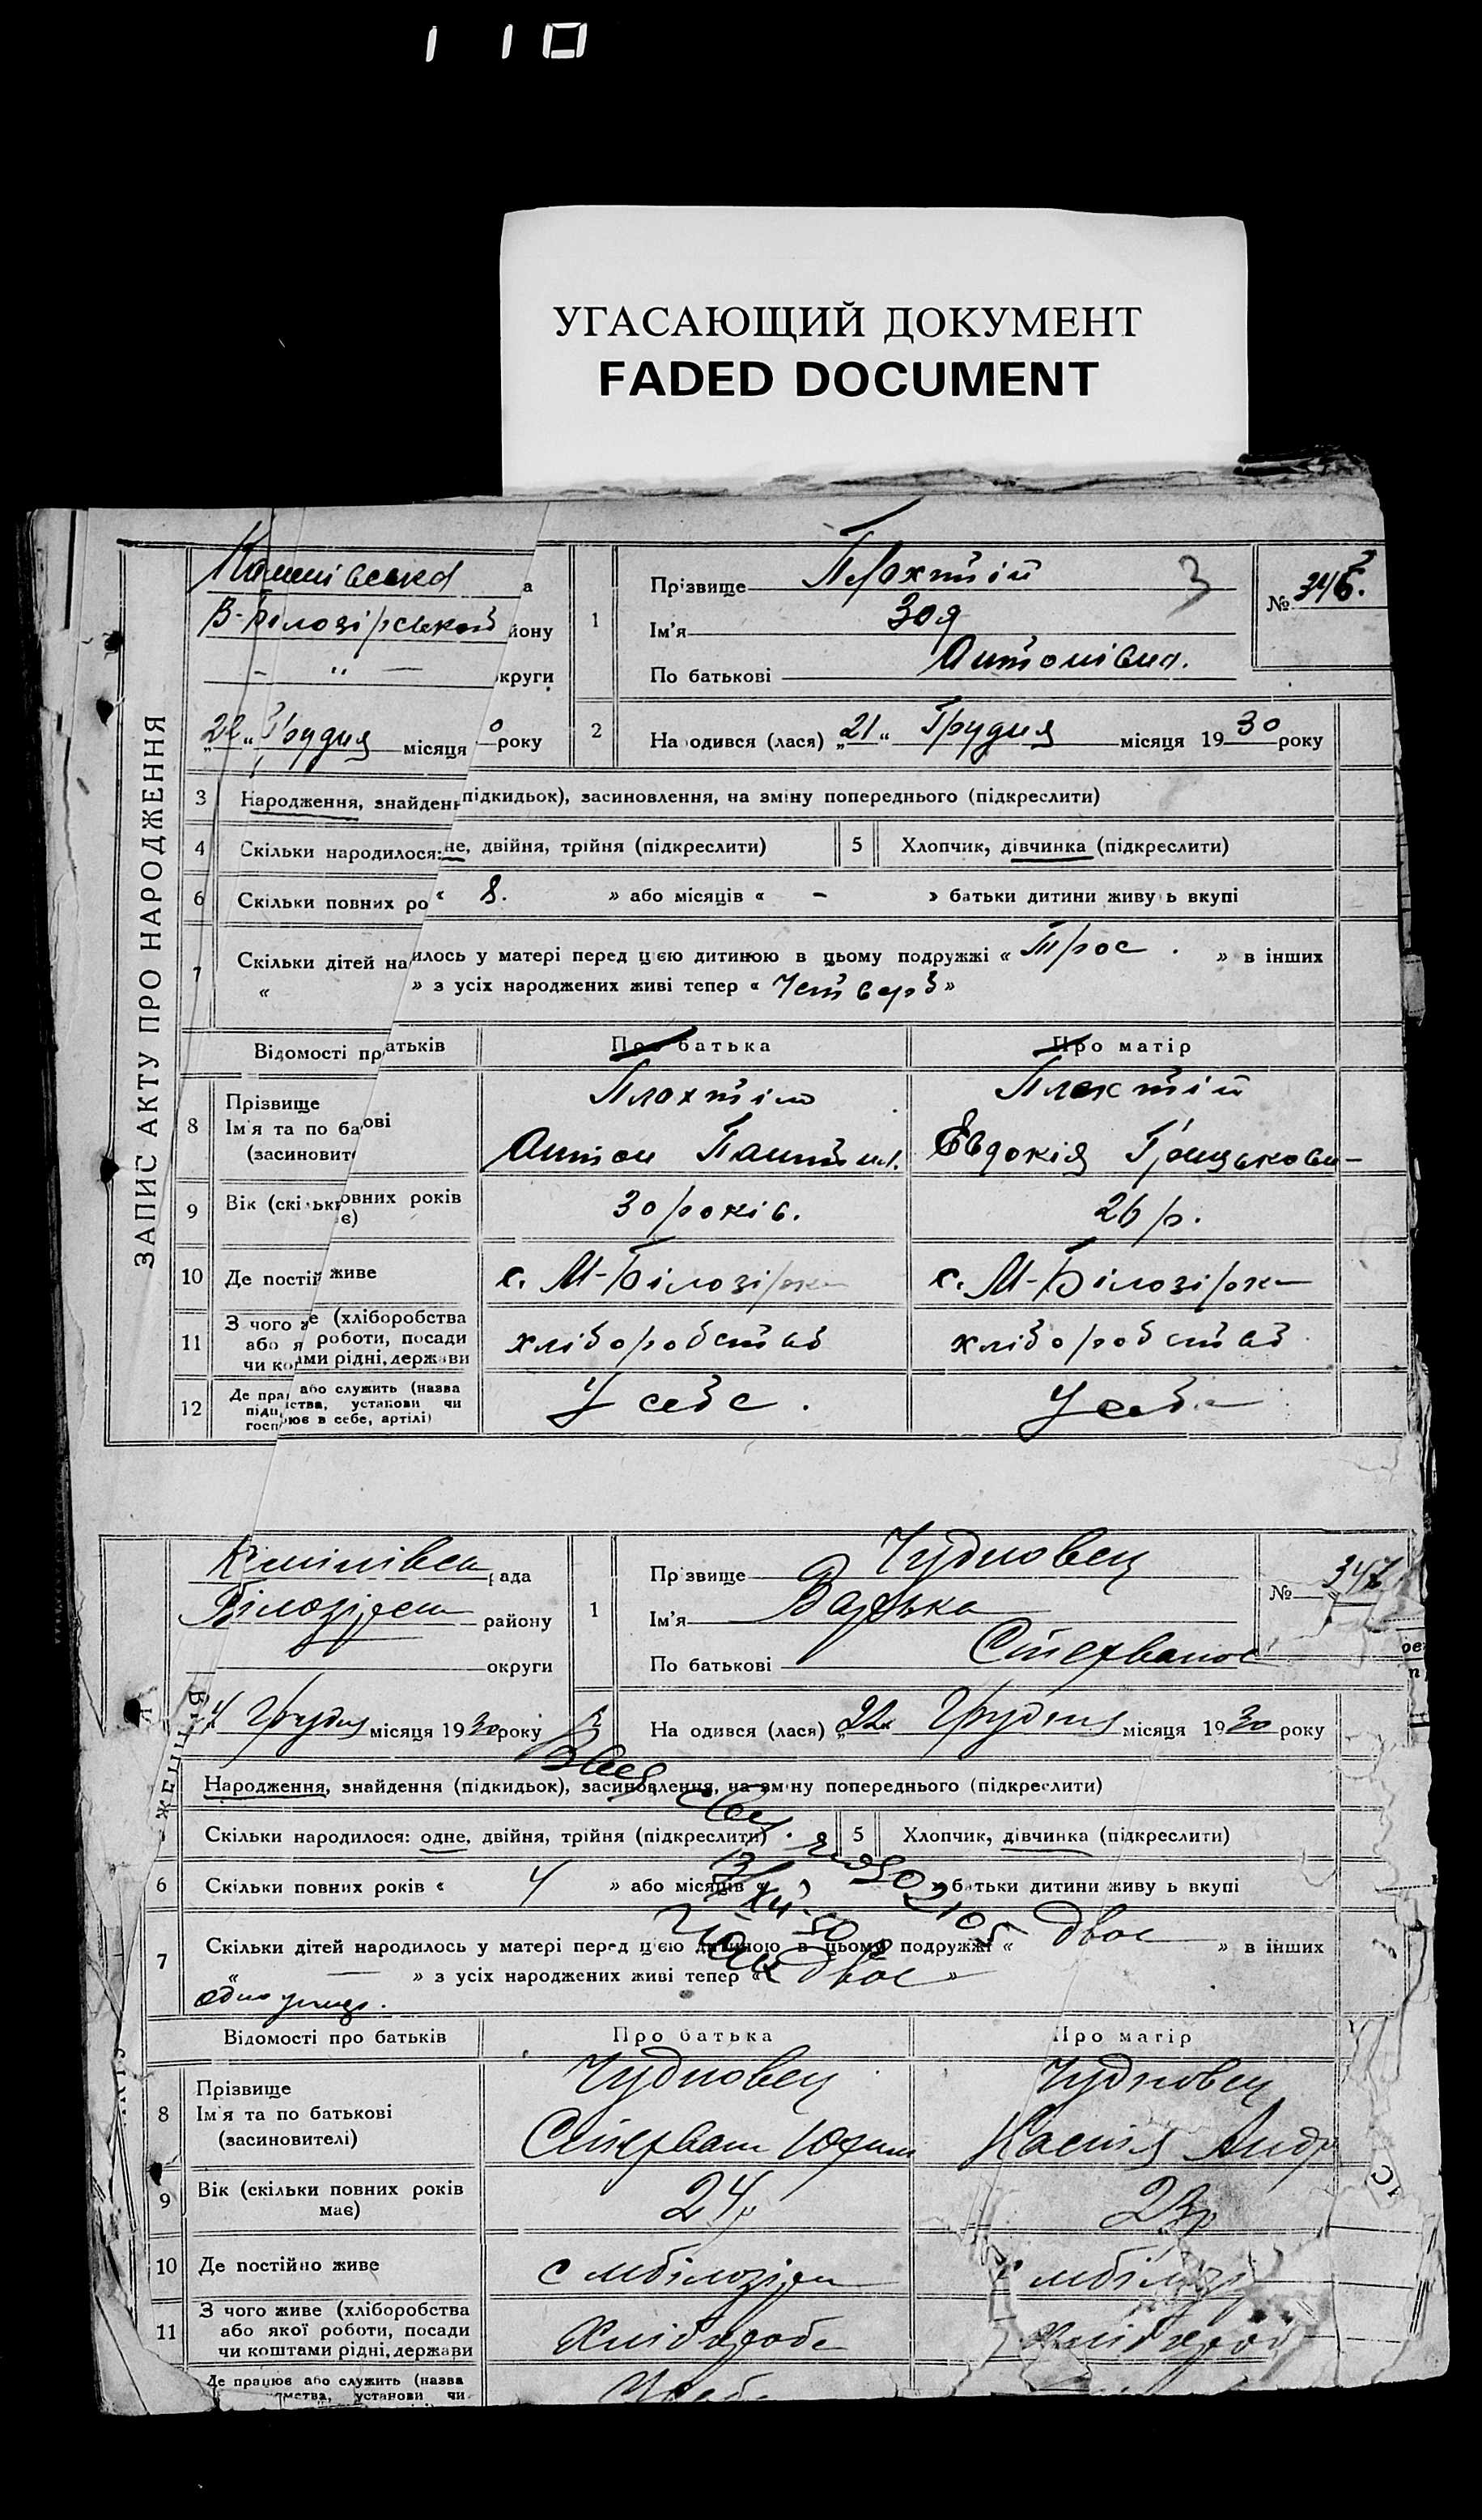 110
УГАСАЮЩИЙ ДОКУМЕНТ
FADED DOCUMENT
ЗАПИС АКТУ ПРО НАРОДЖЕННЯ
а
В-Білозірський йону
— " — круги
„22“ Грудня місяця 0 року
1
Прізвище Плохтій
Ім'я Зоя
По батькові Антонівна.
3
№ 346.
2
На одився (лася) „21“ Грудня місяця 1930 року
3 Народження, знайден підкидьок), засиновлення, на зміну попереднього (підкреслити)
4 Скільки народилося: не, двійня, трійня (підкреслити)
5 Хлопчик, дівчинка (підкреслити)
6 Скільки повних ро « 8. » або місяців « – » батьки дитини живу ь вкупі
7 Скільки дітей на илось у матері перед цією дитиною в цьому подружжі « Троє . » в інших
« » з усіх народжених живі тепер « Четверо »
Відомості пр атьків
Про батька
Про матір
8 Прізвище
Ім'я та по ба ові
(засиновит
Плохтій
Антон
Плохтій
Євдокія Грицькови-
9 Вік (скільк овних років
є)
30 років.
26 р.
10 Де постій живе
с. М-Білозірка
с. М-Білозірка
11 З чого ж е (хліборобства
або я роботи, посади
чи ко ами рідні, держави
хліборобство
хліборобство
12 Де пра або служить (назва
підп ства, установи чи
госп ює в себе, артілі)
У себе.
У себе
рада
району
округи
4 Грудня місяця 1930 року
1
Пр звище Чудновец
Ім'я Варька
По батькові
№ 347
На одився (лася) „22“ Грудня місяця 1930 року
Народження, знайдення (підкидьок), засиновлення, на зміну попереднього (підкреслити)
Скільки народилося: одне, двійня, трійня (підкреслити)
5 Хлопчик, дівчинка (підкреслити)
6 Скільки повних років « 4 » або місяців « » батьки дитини живу ь вкупі
7 Скільки дітей народилось у матері перед цією дитиною в цьому подружжі « двоє » в інших
« — » з усіх народжених живі тепер « двоє »
Відомості про батьків
Про батька
Про матір
8 Прізвище
Ім'я та по батькові
(засиновителі)
Чудновец
Чудновец
Андр
9 Вік (скільки повних років
має)
24р
23р
10 Де постійно живе
с мбілозірка
11 З чого живе (хліборобства
або якої роботи, посади
чи коштами рідні, держави
Хлібороб
хлібороб
Де працює або служить (назва
мства, установи чи